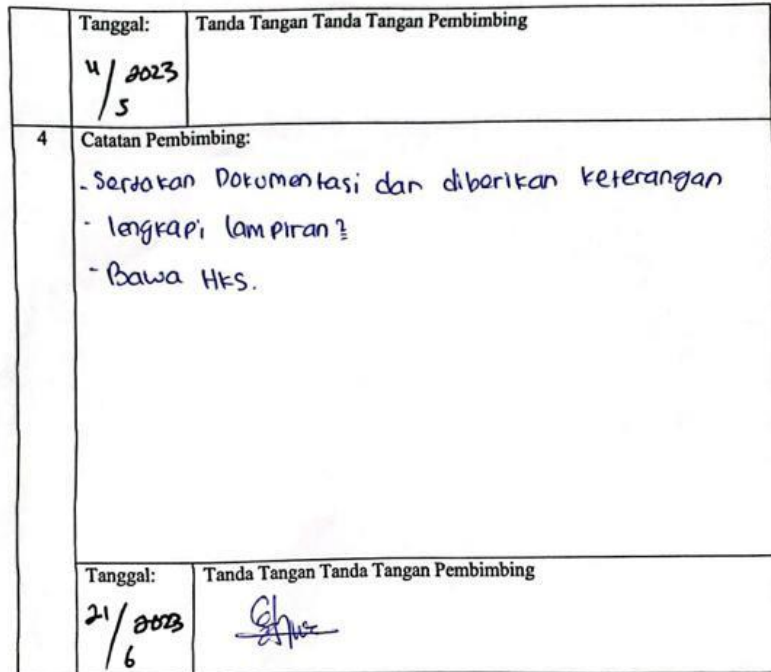 Tanggal: Tanda Tangan Tanda Tangan Pembimbing
4/5 2023
4 Catatan Pembimbing:
- Sertakan Dokumentasi dan diberikan keterangan
- lengkapi lampiran2
- Bawa HKS.
Tanggal: Tanda Tangan Tanda Tangan Pembimbing
21/6 2023